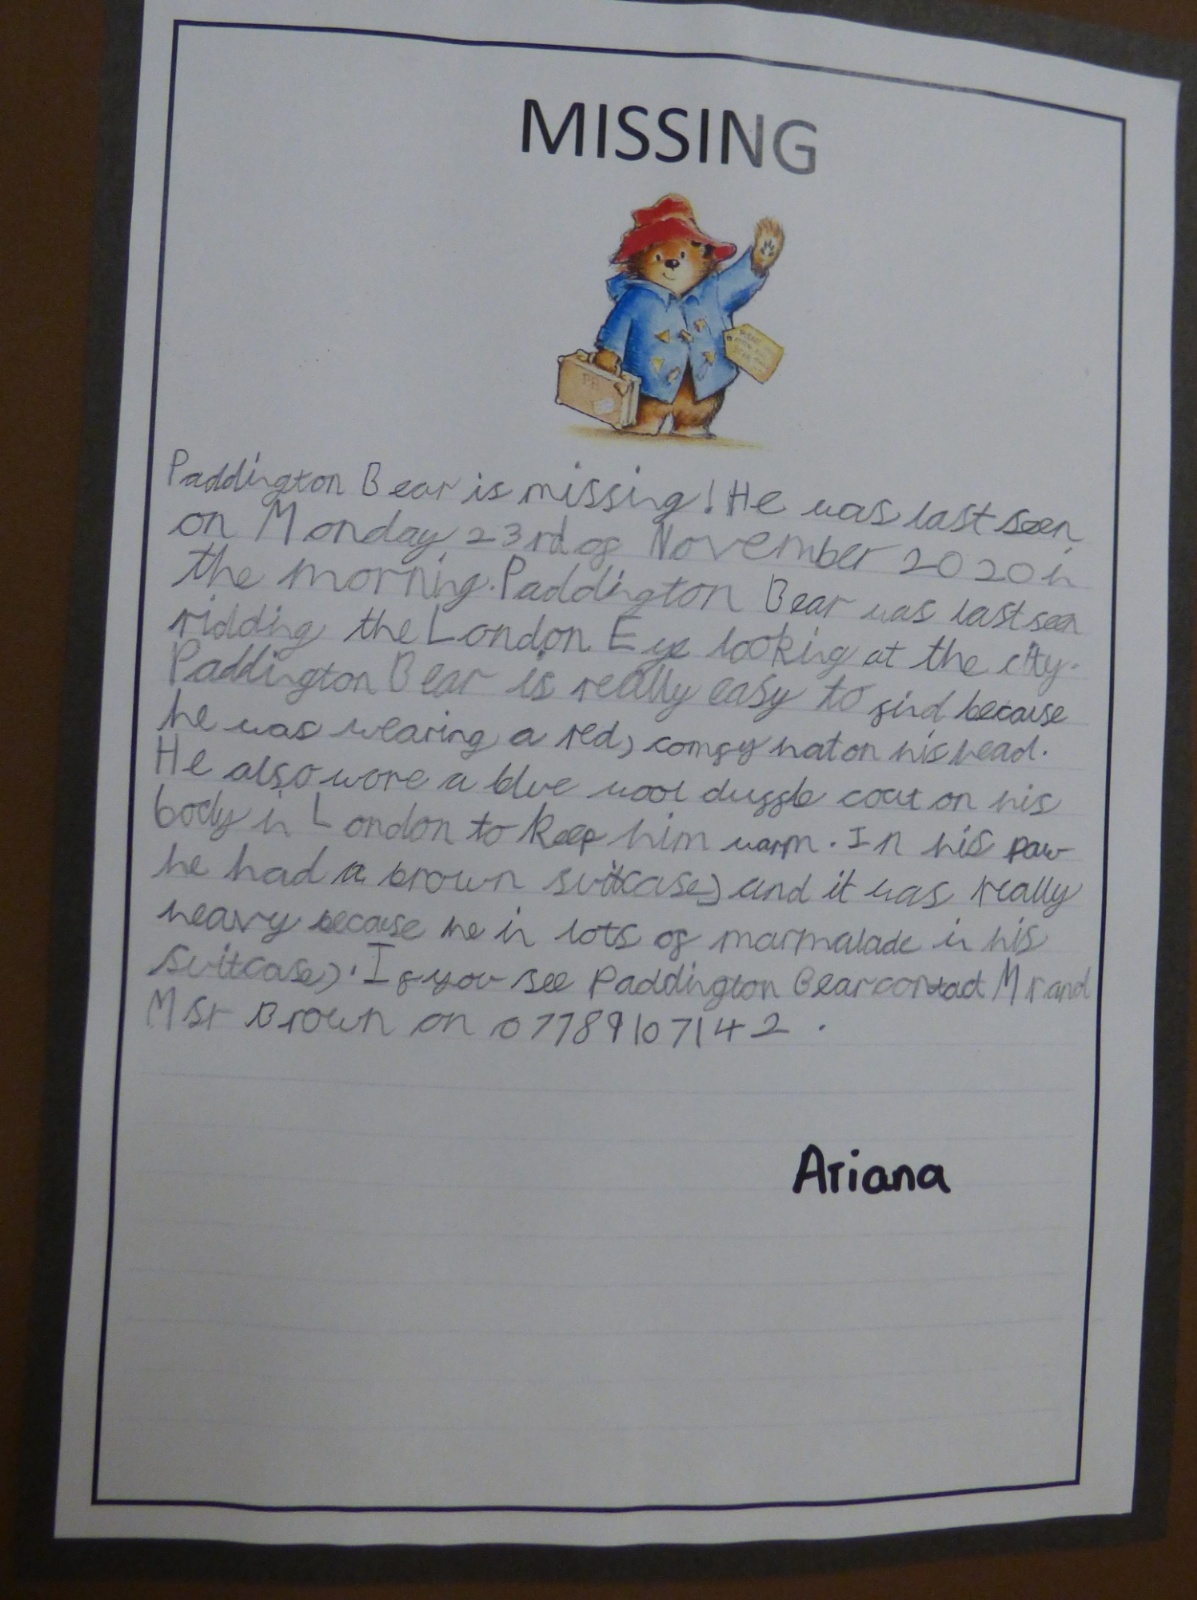 MISSING
PB
Paddington Bear is missing! He was last seen
on Monday 23rd of November 2020 in
the morning. Paddington Bear was last seen
ridding the London Eye looking at the city.
Paddington Bear is really easy to find because
he was wearing a red, comfy hat on his head.
He also wore a blue wool duffle coat on his
body in London to keep him warm. In his paw
he had a brown suitcase, and it was really
heavy because he in lots of marmalade in his
suitcase). If you see Paddington Bear contact Mr and
Msr Brown on 07789107142.
Ariana